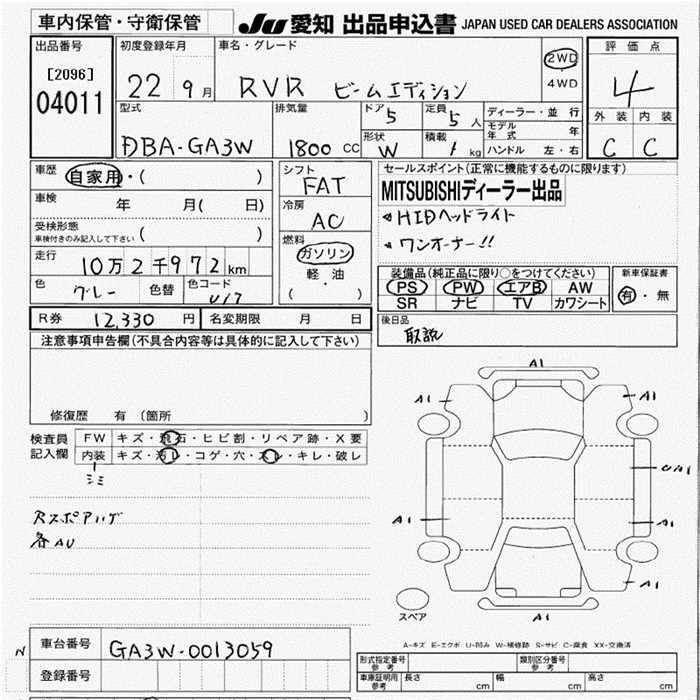 車内保管・守衛保管
JU 愛知 出品申込書 JAPAN USED CAR DEALERS ASSOCIATION
出品番号
[2096]
04011
初度登録年月
22 9月
車名・グレード
RVR ビームエディション
2WD
・
4WD
評価点
4
外装 内装
C C
型式
DBA-GA3W
排気量
1800 CC
ドア 5
形状 W
定員 5人
積載 1 kg
ディーラー・並行
モデル年式 年
ハンドル 左・右
車歴 自家用・( )
車検 年 月( 日)
受検形態
車検付きのみ記入して下さい ( )
走行 10万2千972km
色 グレー 色替 色コード U17
シフト
FAT
冷房
AC
燃料
ガソリン
・
軽・油
( )
セールスポイント(正常に機能するものに限ります)
MITSUBISHIディーラー出品
HIDヘッドライト
ワンオーナー!!
装備品(純正品に限り○をつけてください)
PS PW エアB AW
SR ナビ TV カワシート
新車保証書
有・無
R券 12,330円 名変期限 月 日
後日品
取説
注意事項申告欄(不具合内容等は具体的に記入して下さい)
修復歴 有(箇所 )
検査員
記入欄
FW キズ・飛石・ヒビ割・リペア跡・X要
内装 キズ・汚レ・コゲ・穴・スレ・キレ・破レ
シミ
Rスポアハゲ
各AU
A1
A1
A1
A1
A1
A1
A1
スペア
A-キズ E-エクボ U-凹み W-補修跡 S-サビ C-腐食 XX-交換済
N
車台番号 GA3W-0013059
登録番号
形式指定番号
参考
類別区分番号
参考
車庫証明用
参考
長さ cm 幅 cm 高さ cm